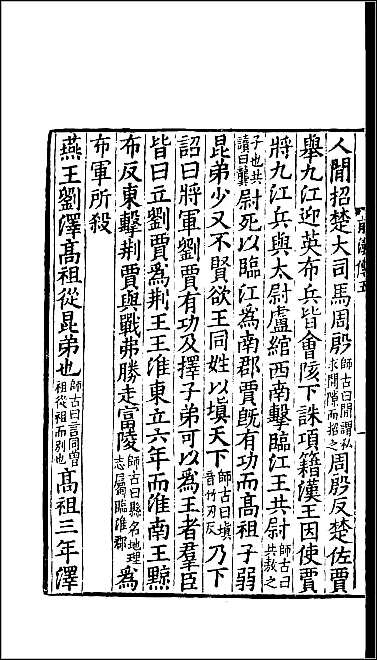 人閒招楚大司馬周殷師古曰閒謂私求閒隙而招之周殷反楚佐賈
舉九江迎英布兵皆會陔下誅項籍漢王因使賈
將九江兵與太尉盧綰西南擊臨江王共尉師古曰共敖之
子也共讀曰龔尉死以臨江為南郡賈旣有功而高祖子弱
昆弟少又不賢欲王同姓以塡天下師古曰塡音竹刃反乃下
詔曰將軍劉賈有功及擇子弟可以為王者羣臣
皆曰立劉賈為荆王王淮東立六年而淮南王黥
布反東擊荆賈與戰弗勝走富陵師古曰縣名地理志屬臨淮郡為
布軍所殺
燕王劉澤高祖從昆弟也師古曰言同曽祖從祖而別也高祖三年澤